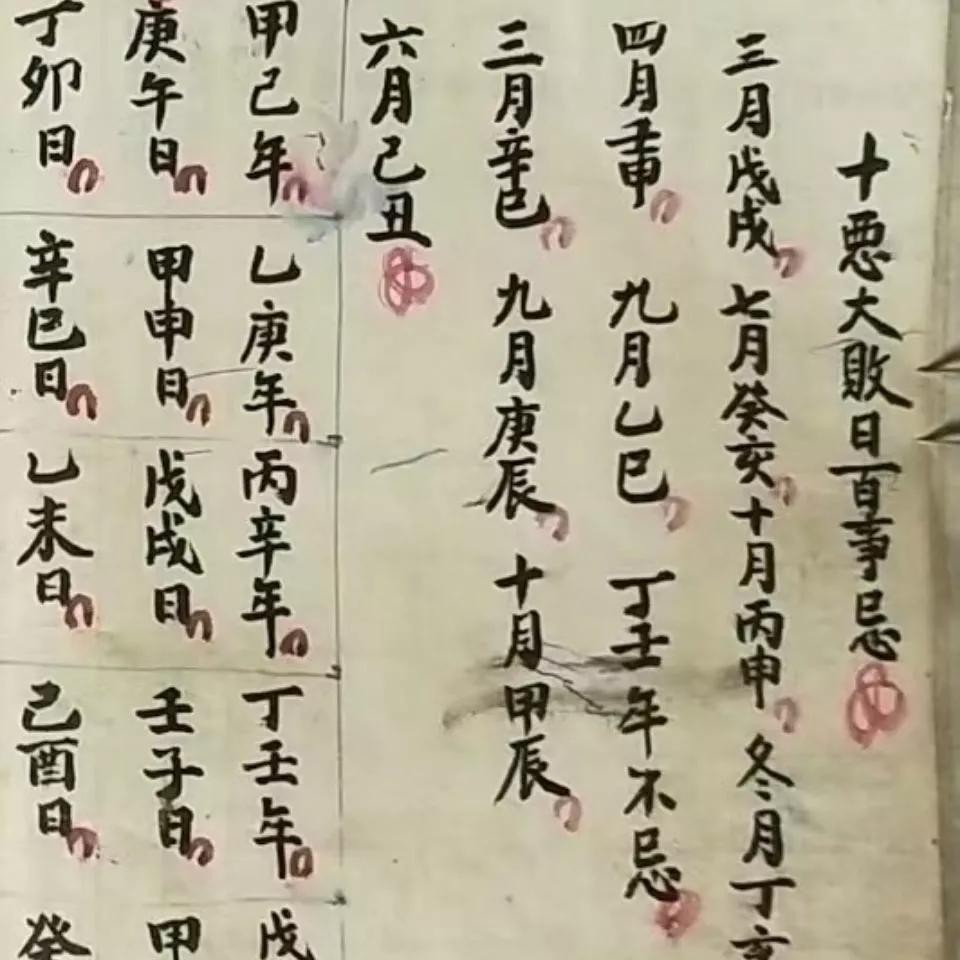 十惡大敗日百事忌
三月戊戌七月癸亥十月丙申冬月丁亥
四月壬申九月乙巳丁壬年不忌
三月辛巳九月庚辰十月甲辰
六月己丑
甲己年
庚午日
丁卯日
乙庚年
甲申日
辛巳日
丙辛年
戊戌日
乙未日
丁壬年
壬子日
己酉日
戊
甲
癸